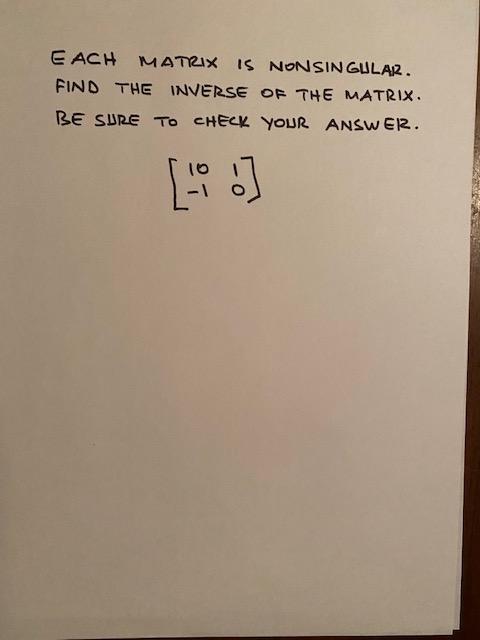 EACH MATRIX IS NONSINGULAR.
FIND THE INVERSE OF THE MATRIX.
BE SURE TO CHECK YOUR ANSWER.
[10 1
-1 0]